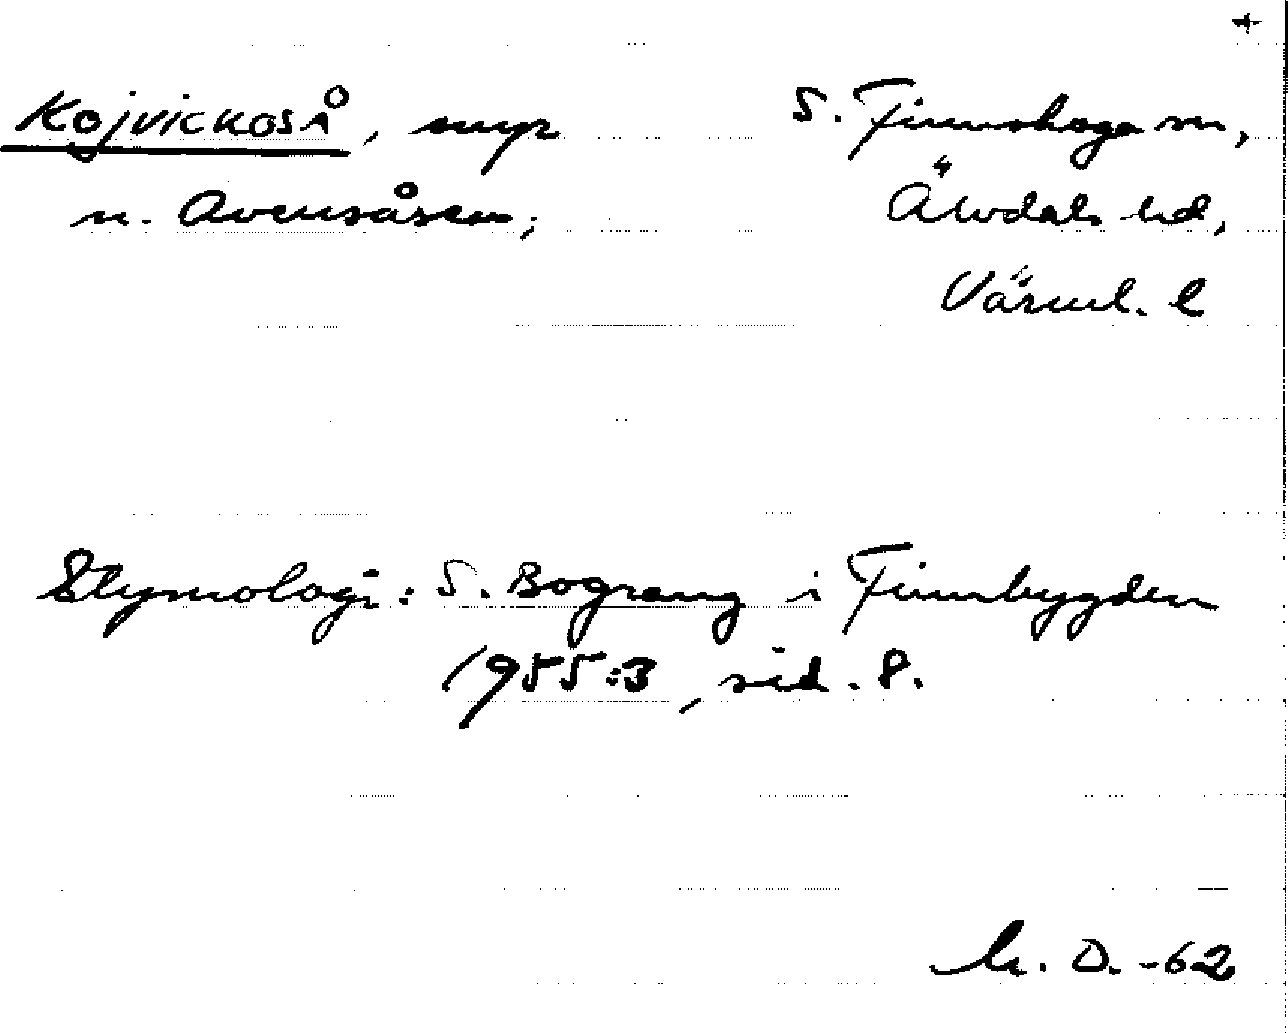 +
Kojvickoså, myr S. Finnskoga sn,
n. Avensåsen; Älvdals hd,
Värml. l
Etymologi: S. Bograng i Finnbygden
1955:3, sid. 8.
D. -62